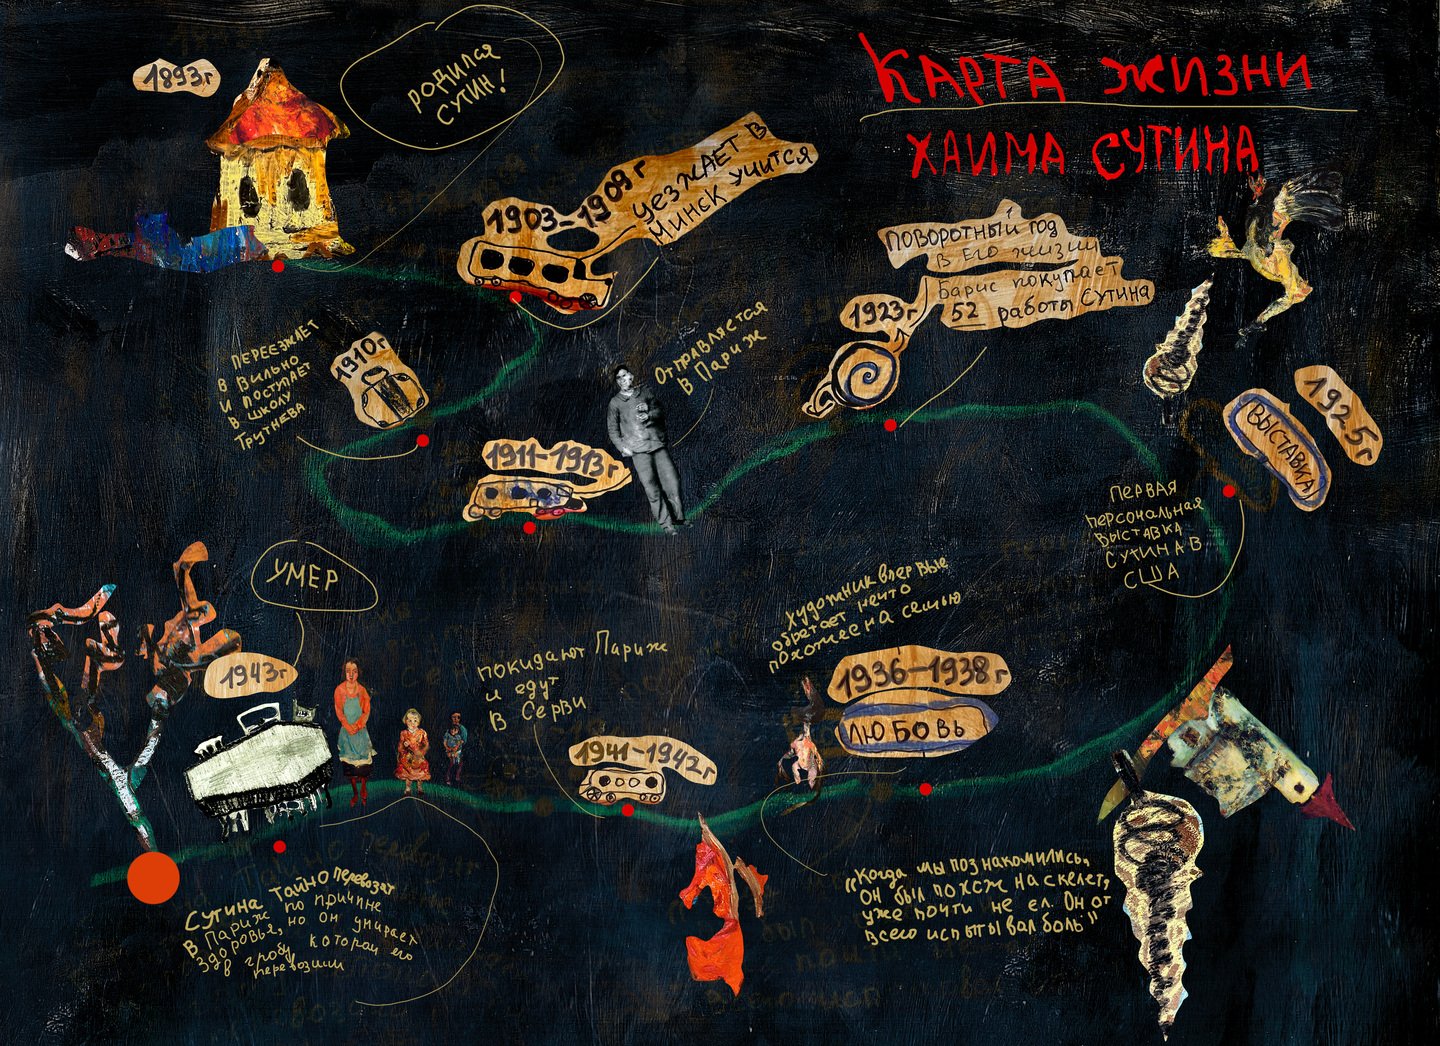 КАРТА ЖИЗНИ
ХАИМА СУТИНА
1893г
РОДИЛСЯ
СУТИН!
1903-1909г
УЕЗЖАЕТ В
МИНСК УЧИТСЯ
1910г
ПЕРЕЕЗЖАЕТ
В ВИЛЬНО
И ПОСТУПАЕТ
В ШКОЛУ
ТРУТНЕВА
1911-1913г
ОТПРАВЛЯЕТСЯ
В ПАРИЖ
1923г
ПОВОРОТНЫЙ ГОД
В ЕГО ЖИЗНИ
Барнс покупает
52 работы Сутина
1925г
ВЫСТАВКА
ПЕРВАЯ
ПЕРСОНАЛЬНАЯ
ВЫСТАВКА
СУТИНА В
США
1936-1938г
ЛЮБОВЬ
ХУДОЖНИК ВПЕРВЫЕ
обретает нечто
похожее на семью
"Когда мы познакомились,
Он был похож на скелет,
уже почти не ел. Он от
всего испытывал боль"
1941-1942г
ПОКИДАЮТ Париж
и едут
В Серви
1943г
УМЕР
СУТИНА ТАЙНО перевозят
В Париж по причине
здоровья, но он умирает
в гробу которои его
перевозили